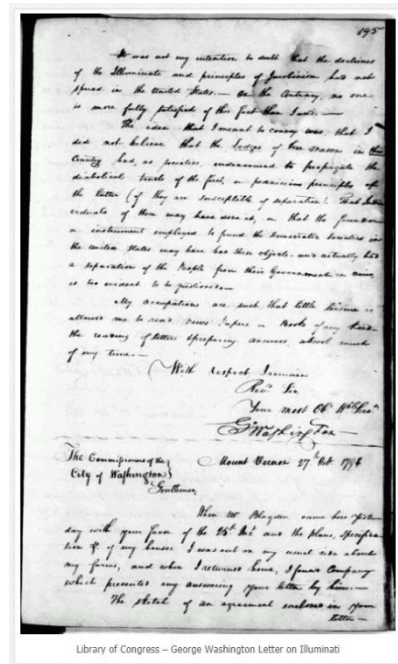 195
It was not my intention to doubt that the doctrines
of the Illuminati and principles of Jacobinism had not
spread in the United States.— On the Contrary, no one
is more fully satisfied of this fact than I am.—
The idea that I meant to convey was, that I
did not believe that the Lodges of Free Masons in this
Country had, as Societies, endeavoured to propagate the
diabolical tenets of the first, or pernicious principles of
the latter (if they are susceptible of separation). That
individuals of them may have done it, or that the founder
or instrument employed to found the Democratic Societies in
the United States may have had these objects; and actually had
a separation of the People from their Government in view,
is too evident to be questioned.—
My occupations are such, that little leisure is
allowed me to read News Papers or Books of any kind;
the reading of letters & preparing answers, absorb much
of my time.—
With respect I remain
Revd Sir
Your most Obt Hble Servt
Go Washington
The Commissioners of the
City of Washington
Mount Vernon 27th Oct 1798
Gentlemen,
When Mr Blagden came here
day with your favor of the 25th Inst and the plans,
tion &c of my houses I was out on my usual ride about
my farms, and when I returned home, I found Company
which prevented my answering your letter by him.—
The sketch of an agreement enclosed in your
letter—
Library of Congress – George Washington Letter on Illuminati